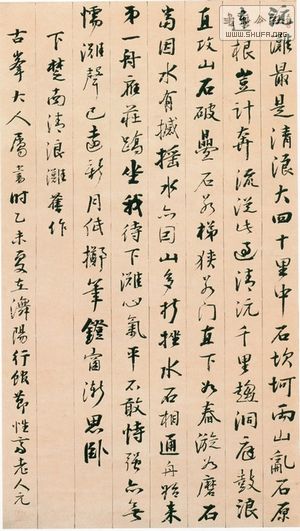 WWW.SHUFA.ORG
沅灘最是清浪大四十里中石坎坷兩山亂石原
連根豈計奔流從此過清沅千里趨洞庭鼓浪
直攻山石破疊石若梯狹若門直下如舂漩如磨石
因水有撼搖水亦因山多折挫水石相通舟始來
第一舟莊蹻坐我待下灘心氣平不敢恃強亦無
懦灘聲已遠新月低擲筆鐙窗漸思臥
下楚南清浪灘舊作
古峯大人屬書時乙未夏在陽行館節性齋老人元